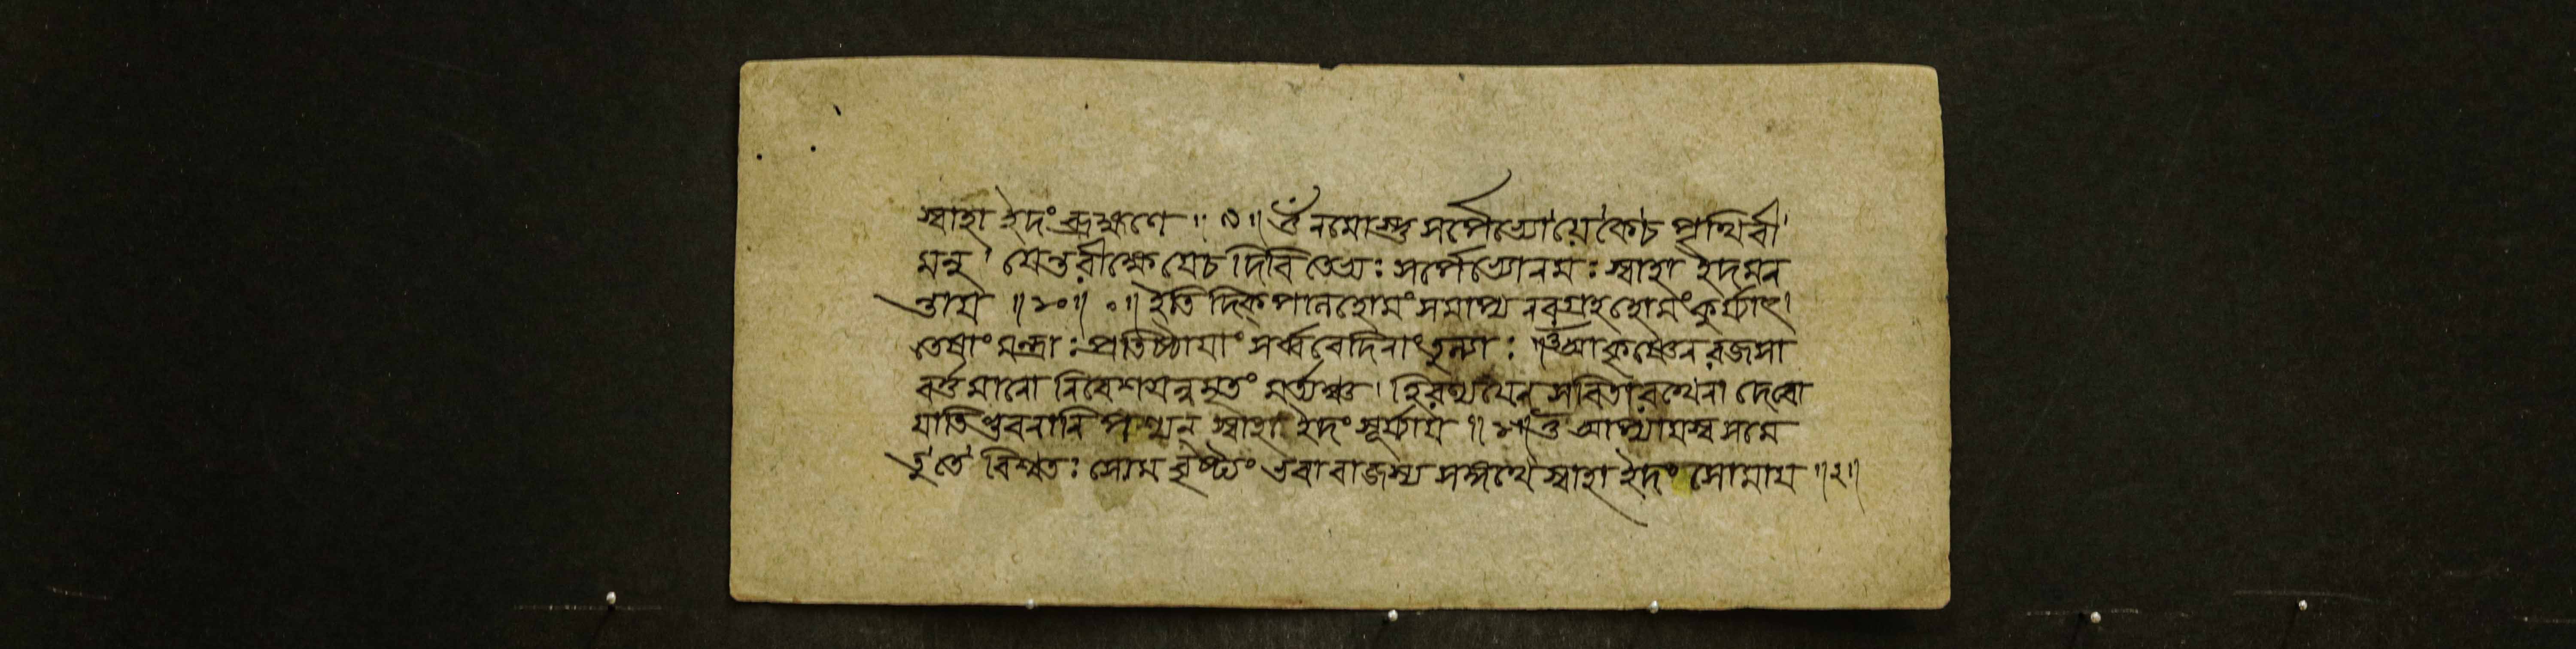 স্বাহা ইদং ব্রহ্মণে ॥ ৯ ॥ ওঁ নমোস্তু সর্পেভ্যো যে কে চ পৃথিবী
মনু । যেন্তরীক্ষে যে চ দিবি তেভ্যঃ সর্পেভ্যো নমঃ স্বাহা ইদমন
ন্তায় ॥ ১০ ॥ ० ॥ ইতি দিক্পালহোমং সমাপ্য নবগ্রহহোমং কুর্য্যাৎ ।
তেষাং মন্ত্রাঃ প্রতিষ্ঠায়াং সর্ব্ববেদিনাং তুল্যাঃ ওঁ আকৃষ্ণেন রজসা
বর্ত্তমানো নিবেশয়ন্নমৃতং মর্ত্যঞ্চ । হিরণ্যয়েন সবিতা রথেনা দেবো
যাতি ভুবনানি পশ্যন্ স্বাহা ইদং সূর্য্যায় ॥ ১ ॥ ওঁ আপ্যায়স্ব সমে
তু তে বিশ্বতঃ সোম বৃষ্ণ্যং ভবা বাজস্য সঙ্গথে স্বাহা ইদং সোমায় ॥ ২ ॥